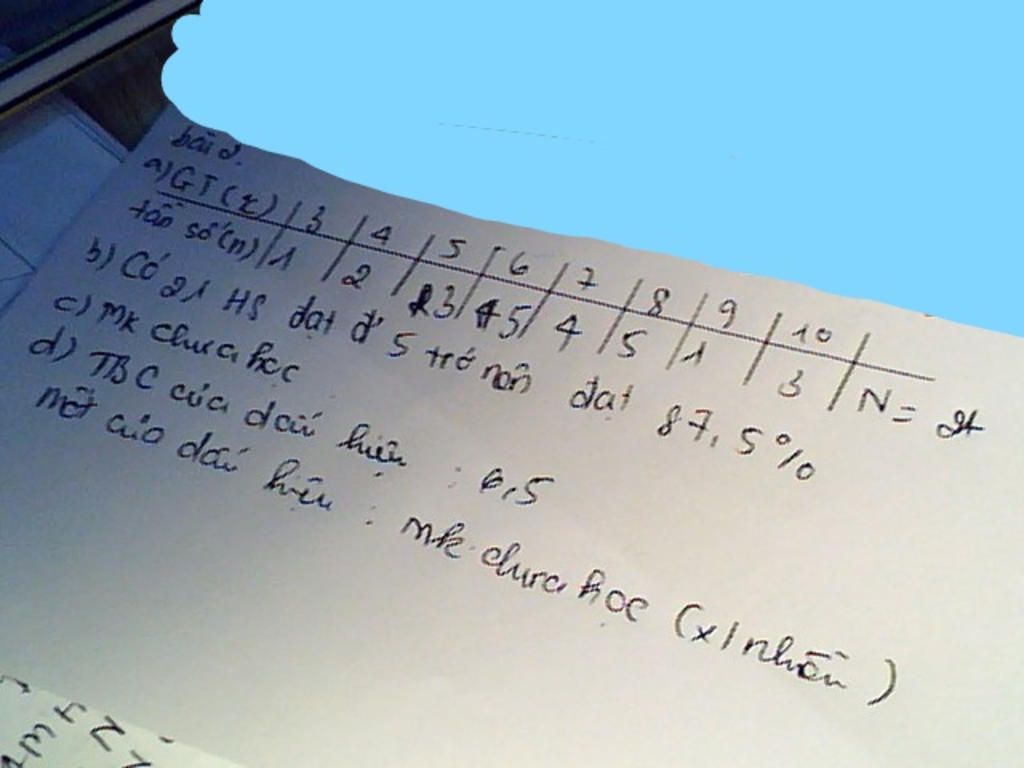 bài 2.
a) GT(x) | 3 | 4 | 5 | 6 | 7 | 8 | 9 | 10 |
tần số (n) | 1 | 2 | 3 | 5 | 4 | 5 | 1 | 3 | N = 24
b) Có 21 HS đạt đ' 5 trở nên đạt 87,5%
c) mk chưa học
d) TBC của dấu hiệu : 6,5
mốt của dấu hiệu : mk chưa học (x/nhấn)